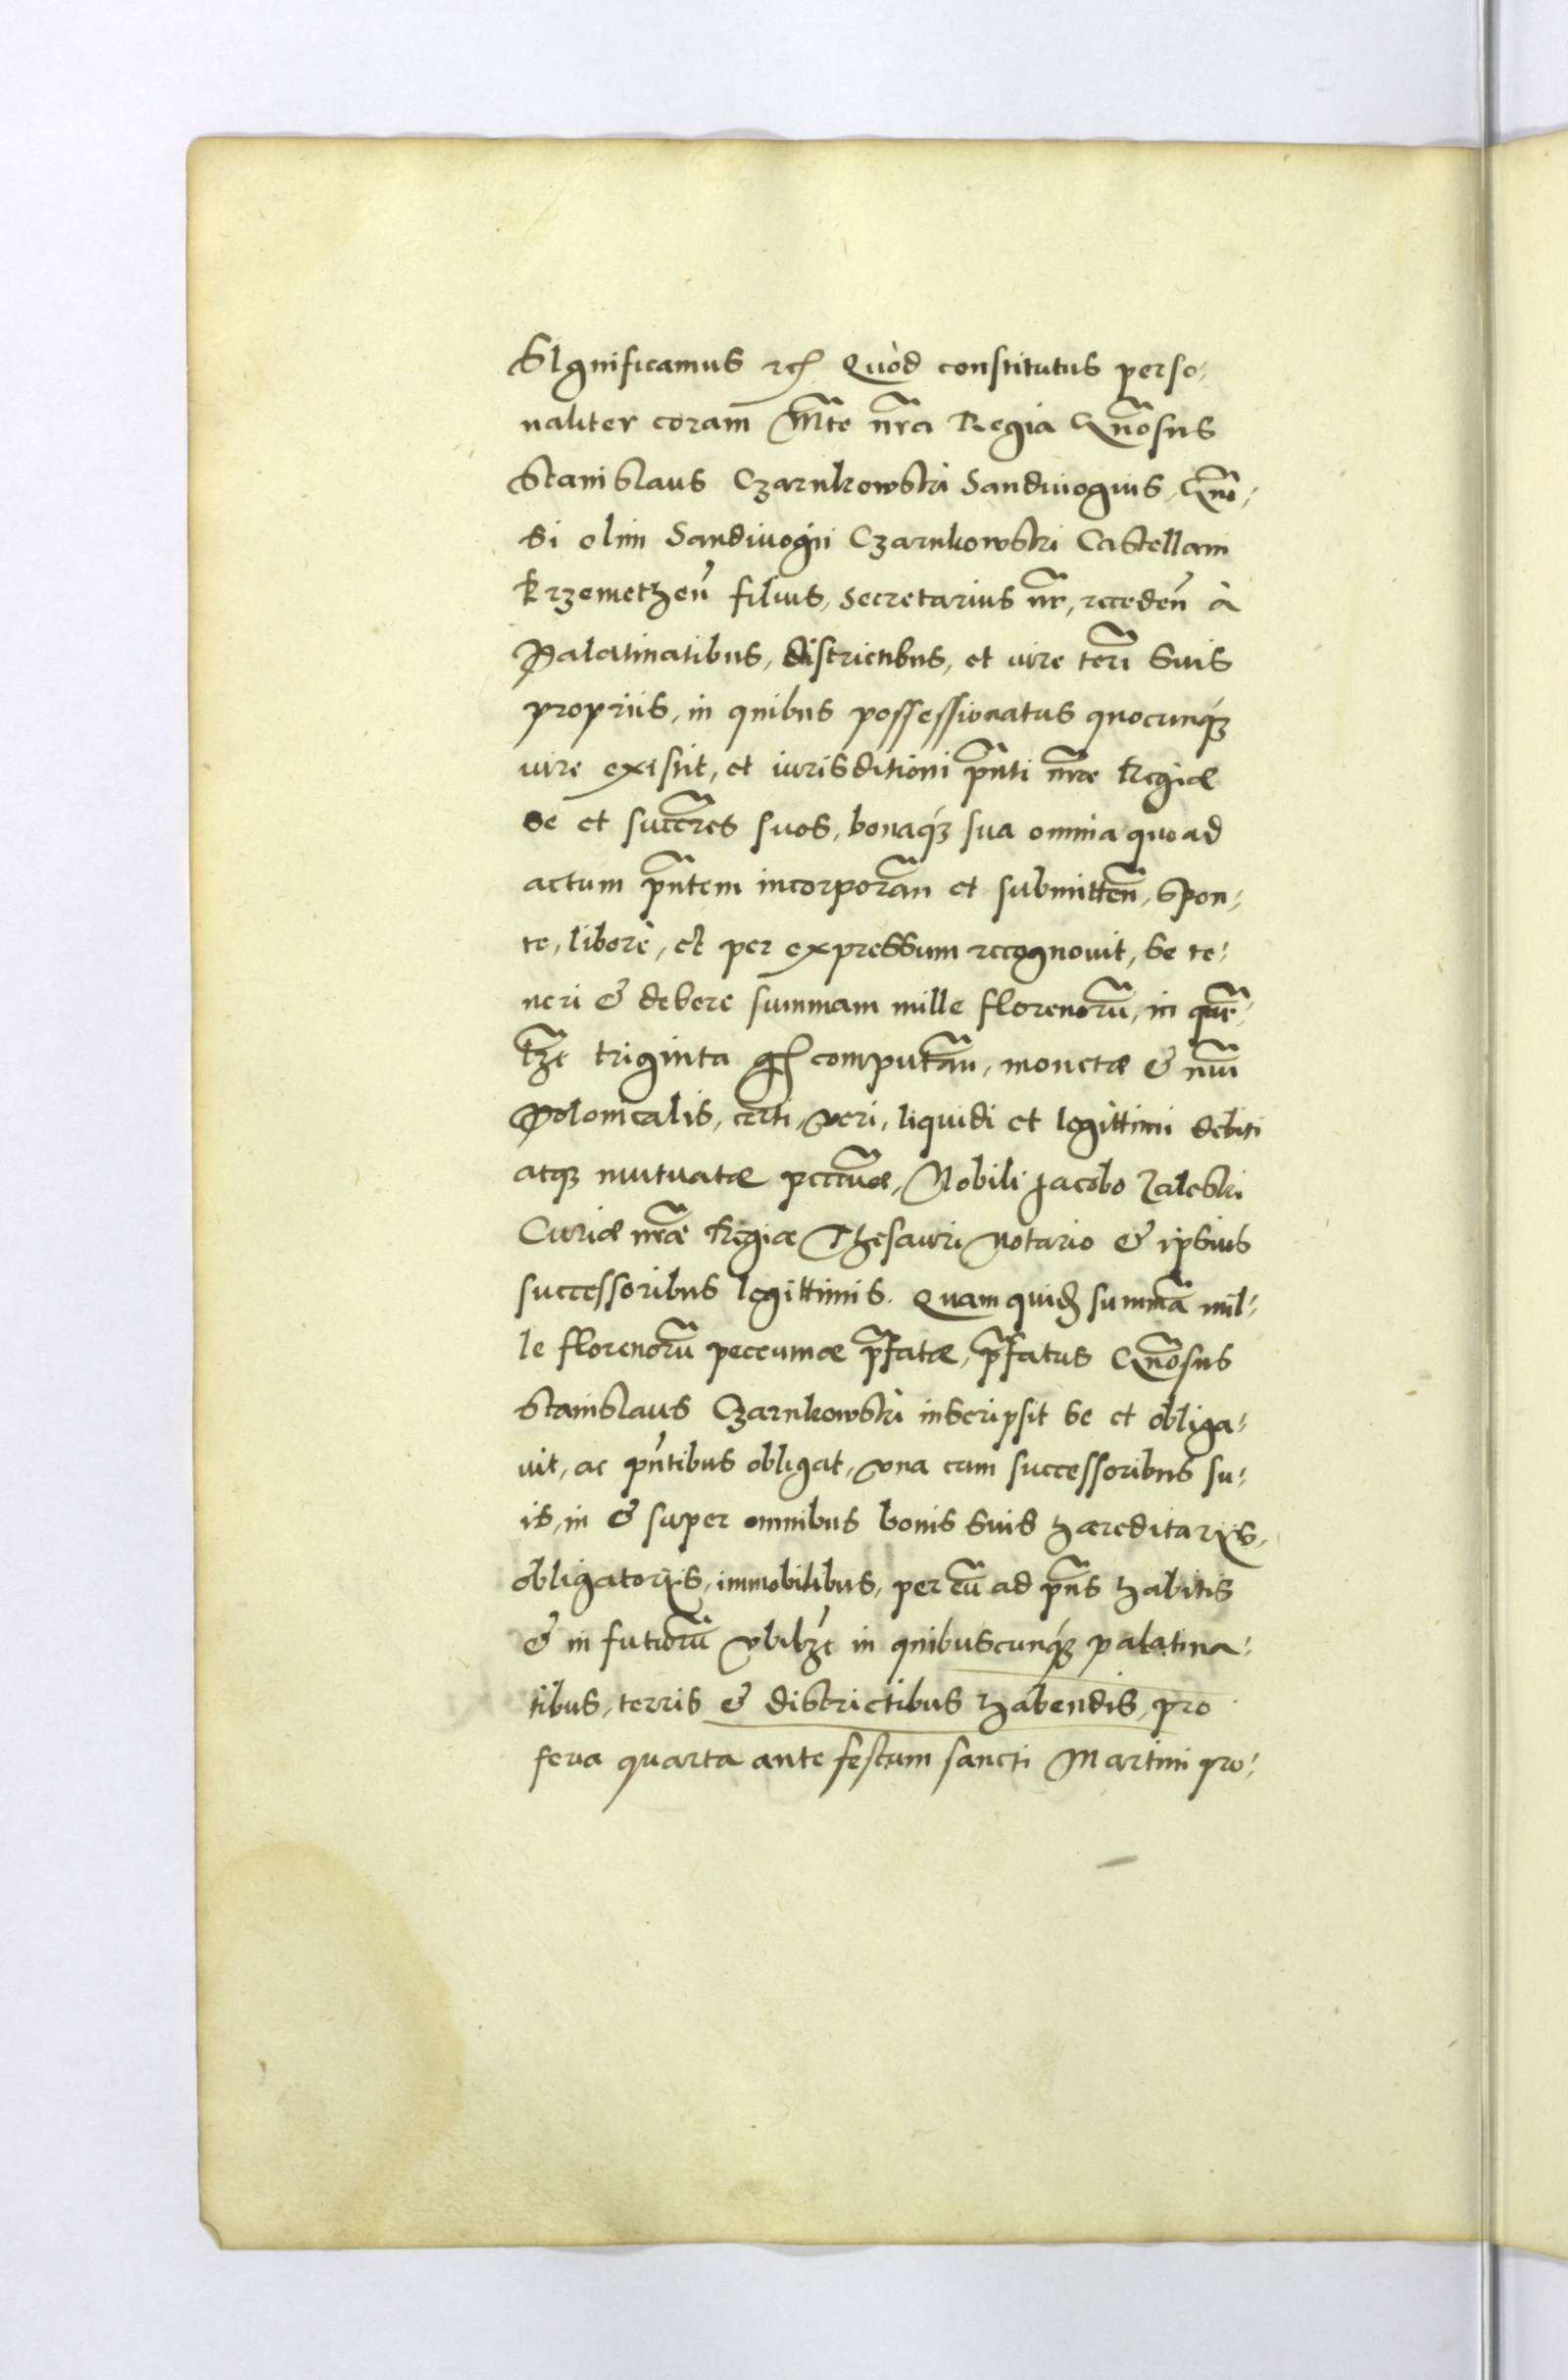 SIgnificamus etc Quòd constitutus perso-
naliter coram Mte nra Regia Gnosus
Stanislaus Czarnkowski Sandiuogius, Gno-
si olim Sandiuogii Czarnkowski Castellani
Krzemetzen filius, Secretarius nr, receden à
Palatinatibus, districtibus, et iure terri suis
propriis, in quibus possessionatus quocunq
iure existit, et iurisditioni pnti nrae Regiae
se et succres suos, bonaq sua omnia quoad
actum pntem incorporan et submitten, spon-
te, liberè, et per expressum recognouit, se te-
neri & debere summam mille florenoru, in quem-
tzt triginta gs computan, monetae & nui
Polonicalis, certi, veri, liquidi et legittimi debiti
atq mutuatae peccuae, Nobili Jacobo Zaleski
Curiae nrae Regiae Thesauri Notario & ipsius
successoribus legittimis. Quam quid summa mil-
le florenoru peccuniae pfatae, pfatus Gnosus
Stanislaus Czarnkowski inscripsit se et obliga-
uit, ac pntibus obligat, vna cum successoribus su-
is, in & super omnibus bonis suis haereditariis,
obligatoriis, immobilibus, per eu ad pns habitis
& in futuru vbilzt in quibuscunq palatina-
tibus, terris & districtibus habendis, pro
feria quarta ante festum sancti Martini pro-